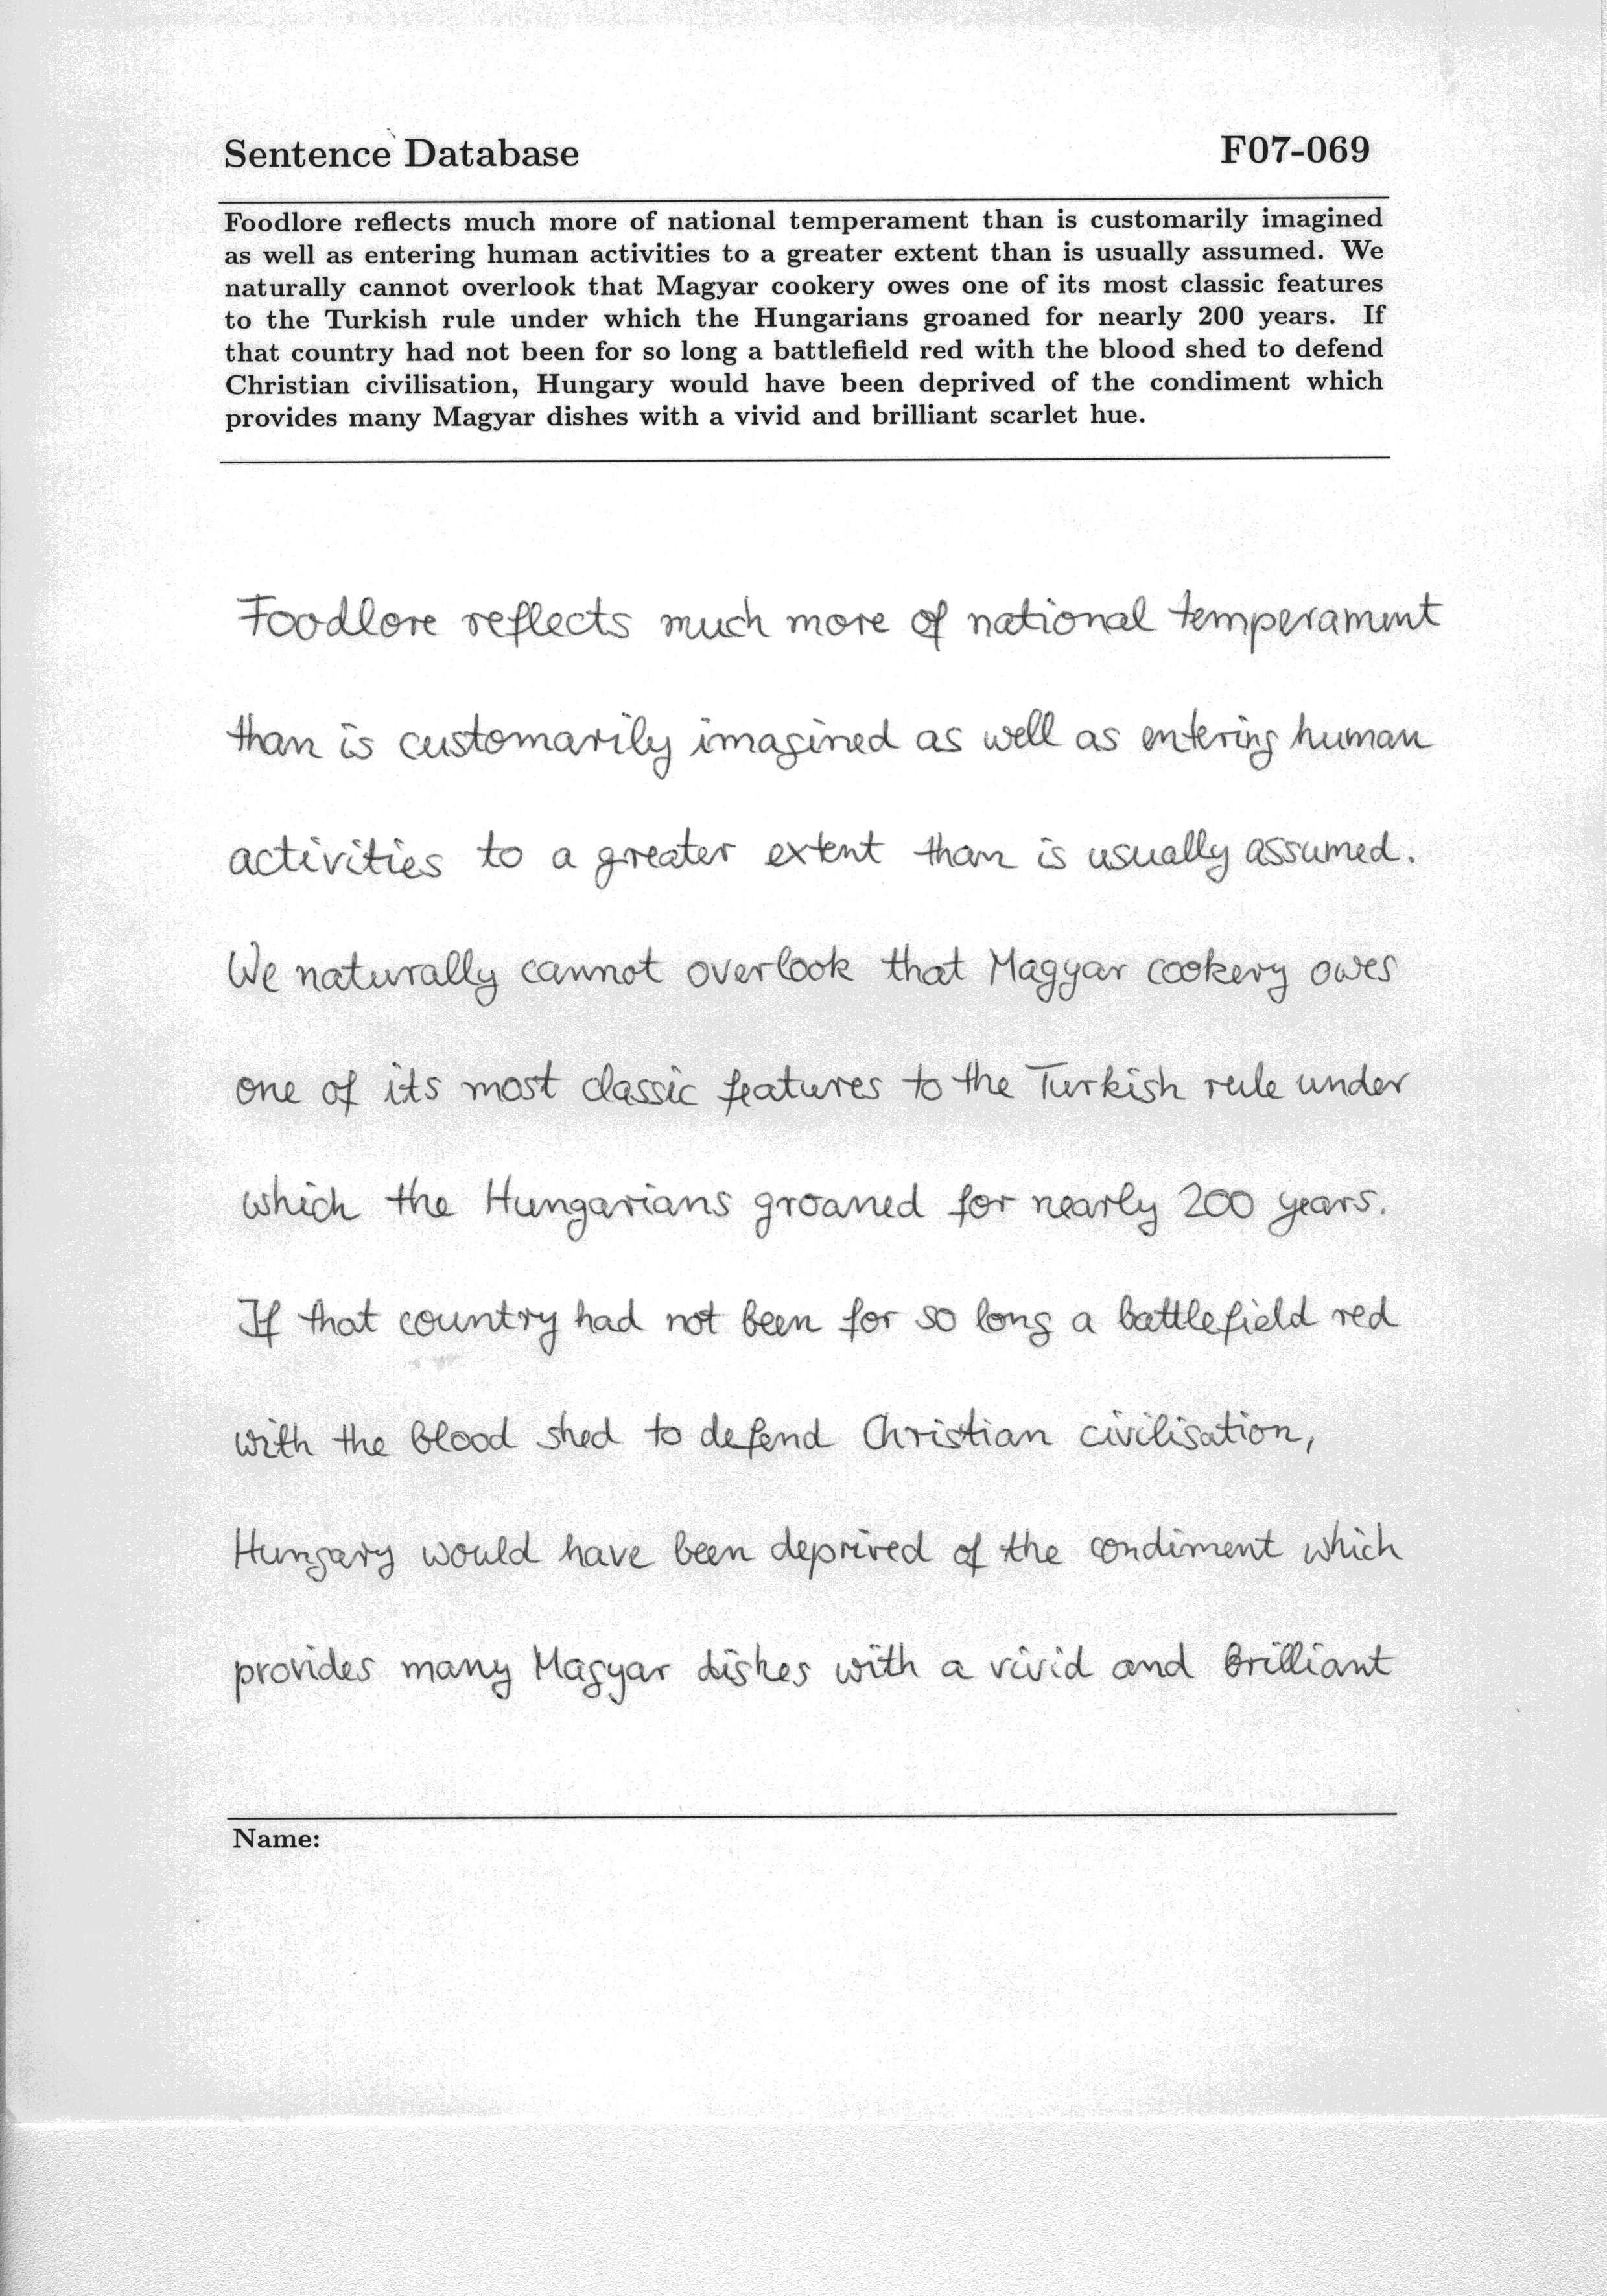 Sentence Database F07-069
Foodlore reflects much more of national temperament than is customarily imagined
as well as entering human activities to a greater extent than is usually assumed. We
naturally cannot overlook that Magyar cookery owes one of its most classic features
to the Turkish rule under which the Hungarians groaned for nearly 200 years. If
that country had not been for so long a battlefield red with the blood shed to defend
Christian civilisation, Hungary would have been deprived of the condiment which
provides many Magyar dishes with a vivid and brilliant scarlet hue.
Foodlore reflects much more of national temperament
than is customarily imagined as well as entering human
activities to a greater extent than is usually assumed.
We naturally cannot overlook that Magyar cookery owes
one of its most classic features to the Turkish rule under
which the Hungarians groaned for nearly 200 years.
If that country had not been for so long a battlefield red
with the blood shed to defend Christian civilisation,
Hungary would have been deprived of the condiment which
provides many Magyar dishes with a vivid and brilliant
Name: